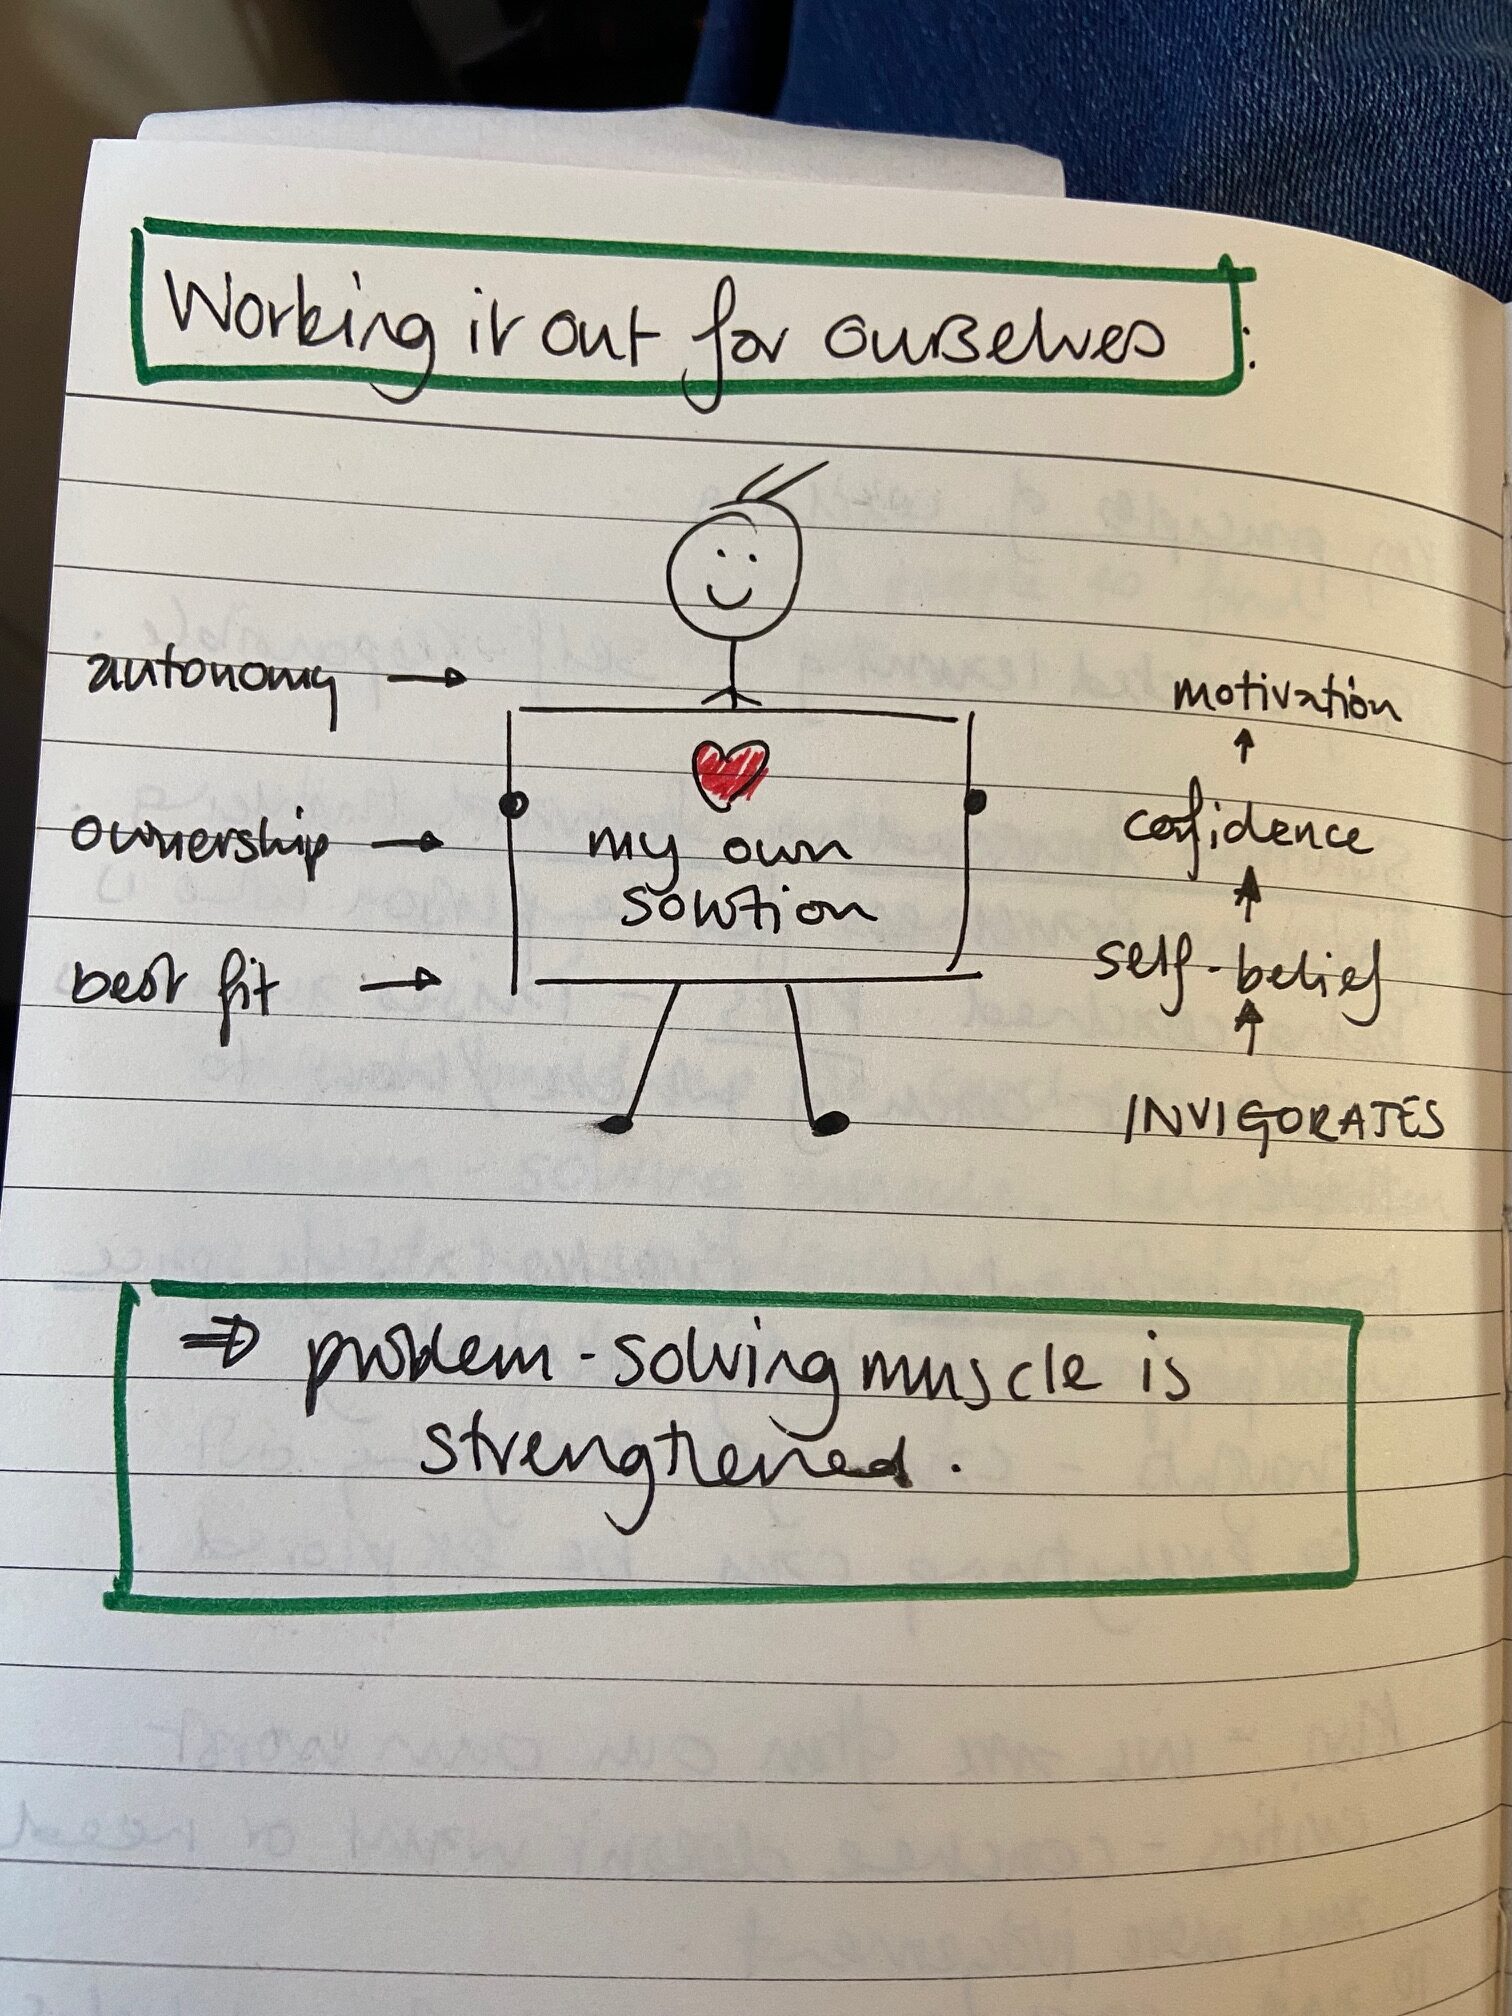 Working it out for ourselves :
autonomy →
ownership →
best fit →
my own
solution
motivation
↑
confidence
↑
self-belief
↑
INVIGORATES
⇒ problem-solving muscle is
strengthened.